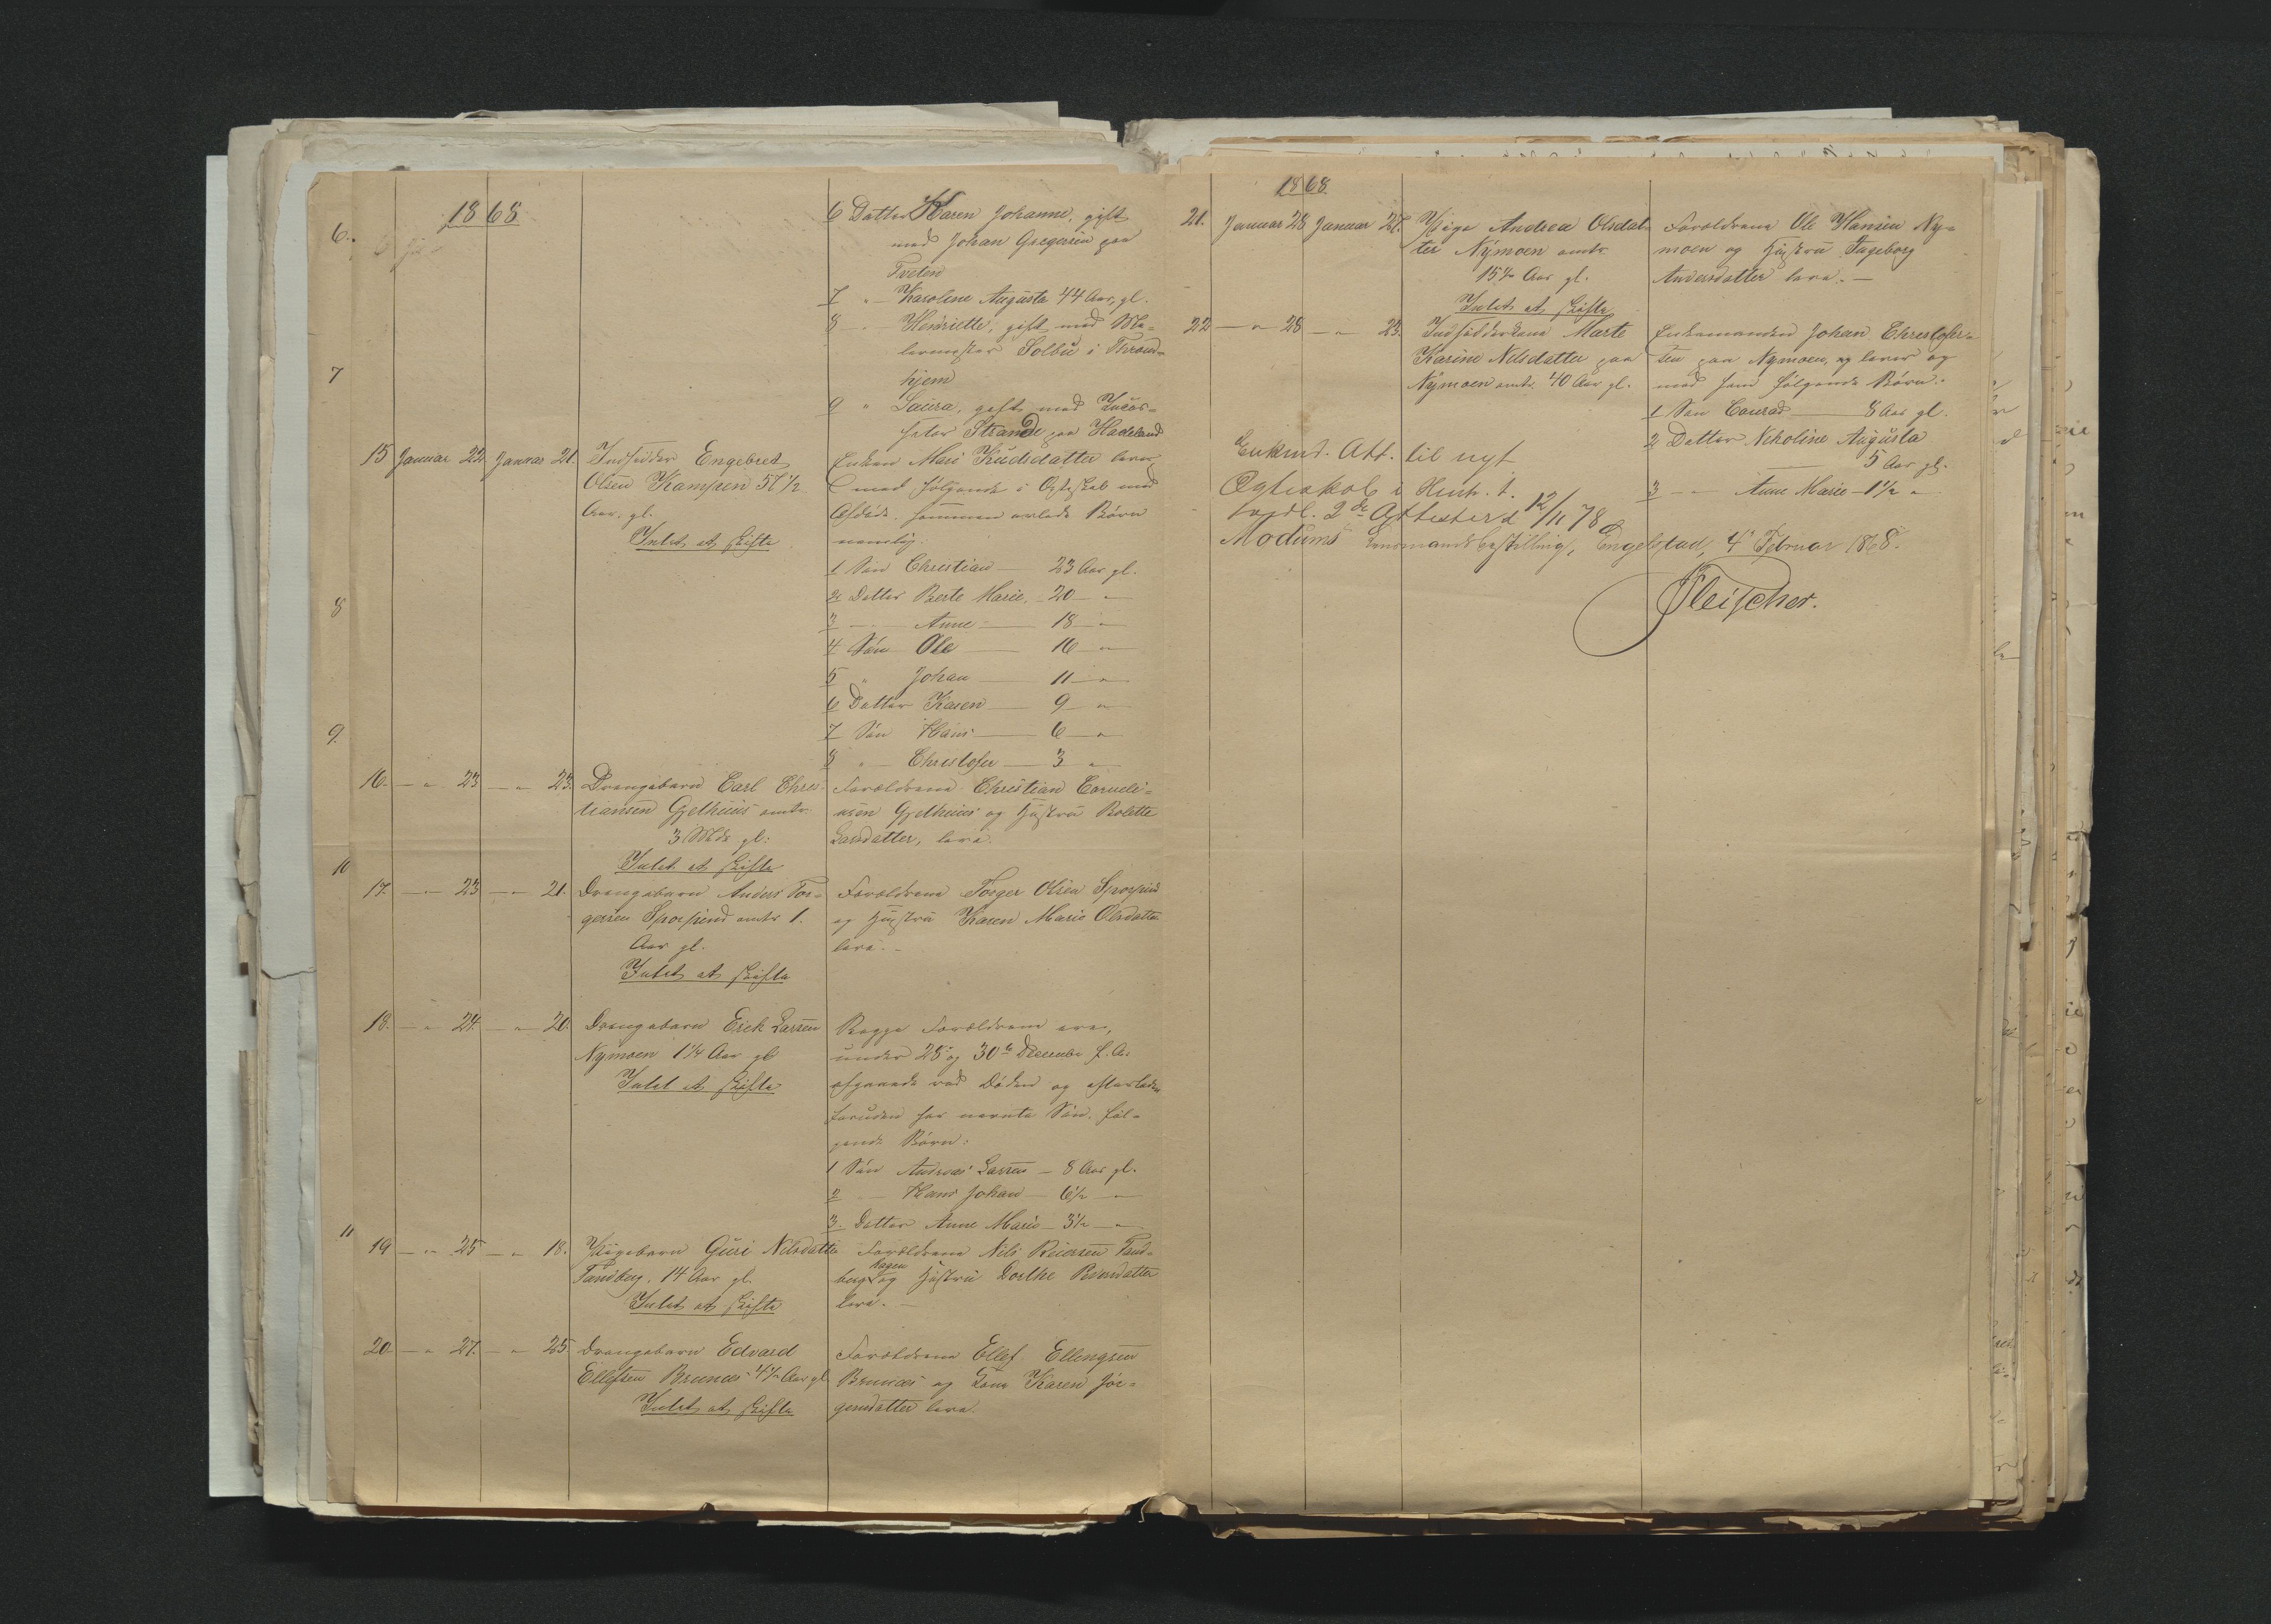 1868
6 Datter Karen Johanne, gift
med Johan Gregersen paa
Tveten
7 " - Karoline Augusta 44 Aar, gl.
8 - Henriette, gift med Ma-
lermester Solbu i Thrond-
hjem
9 " Laura, gift med
Strande paa Hadeland
15 Januar 22 Januar 21. Indsidder Engebret
Olsen Kampen 57 1/2
Aar. gl.
Intet at skifte
Enken Mari Knudsdatter lever,
med følgende i Ægteskab med
Afdøde sammen avlede Børn
nemlig:
1 Søn Christian — 23 Aar gl.
2 Datter Berte Marie, - 20 — "
3 — Anne — 18 — "
4 Søn Ole — 16 — "
5 " Johan — 11 — "
6 Datter Karen — 9 — "
7 Søn Hans — 6 — "
8 " — Christofer — 3 "
16. — " 23 — " 23. Drengebarn Carl Chris-
tiansen Gjethuus omtr.
3 Mdr gl.
Intet at skifte
Forældrene Christian Corneli-
usen Gjethuus og Hustru Bolette
Larsdatter, leve.
17. — " 23 — " 21. Drengebarn Anders Tor-
gersen omtr 1.
Aar gl.
Intet at skifte
Forældrene Torger Olsen
og Hustru Karen Marie Olsdatter
leve. -
18. — " 24. — " 20. Drengebarn Erik Larsen
Nymoen 1 1/4 Aar gl
Intet at skifte
Begge Forældrene ere,
under 28de og 30te December f. A.
afgaaede ved Døden og efterlader
foruden her nævnte Søn, føl-
gende Børn:
1 Søn Andreas Larsen — 8 Aar gl.
2 — Hans Johan — 6 1/2 — "
3. Datter Anne Marie — 3 1/2 — "
19 — " 25 — " 18. Pigebarn Guri Nilsdatter
Tandberg. 14 Aar gl.
Intet at skifte
Forældrene Nils Reiersen Tand-
berg hagen og Hustru Dorthe
leve. —
20 — " 27. — " 25 Drengebarn Edvard
Ellefsen Brunæs 4 1/2 Aar gl
Intet at skifte
Forældrene Ellef Ellingsen
Brunæs og Kone Karen Jør-
gensdatter leve.
6.
7
8
9.
10
11
1868.
21. Januar 28 Januar 27. Pige Andrea Olsdat-
ter Nymoen omtr.
15 1/2 Aar gl.
Intet at skifte
Forældrene Ole Hansen Ny-
moen og Hustru Ingeborg
Andersdatter leve. —
22 — " 28 — " 23. Indsidderkone Marte
Karine Nilsdatter paa
Nymoen omtr. 40 Aar gl.
Enkemanden Johan Christofer-
sen paa Nymoen, og lever og
med ham følgende Børn:
1 Søn Conrad — 8 Aar gl.
2 Datter Nikoline Augusta
— 5 Aar gl.
3 — " Anne Marie - 1 1/2 "
Enkmd. Att. til nyt
Ægteskab i Henh. t.
2de Attester d 12/11 78
Modums Lensmandsbestilling, Engelstad, 4de Februar 1868.
Fleischer.